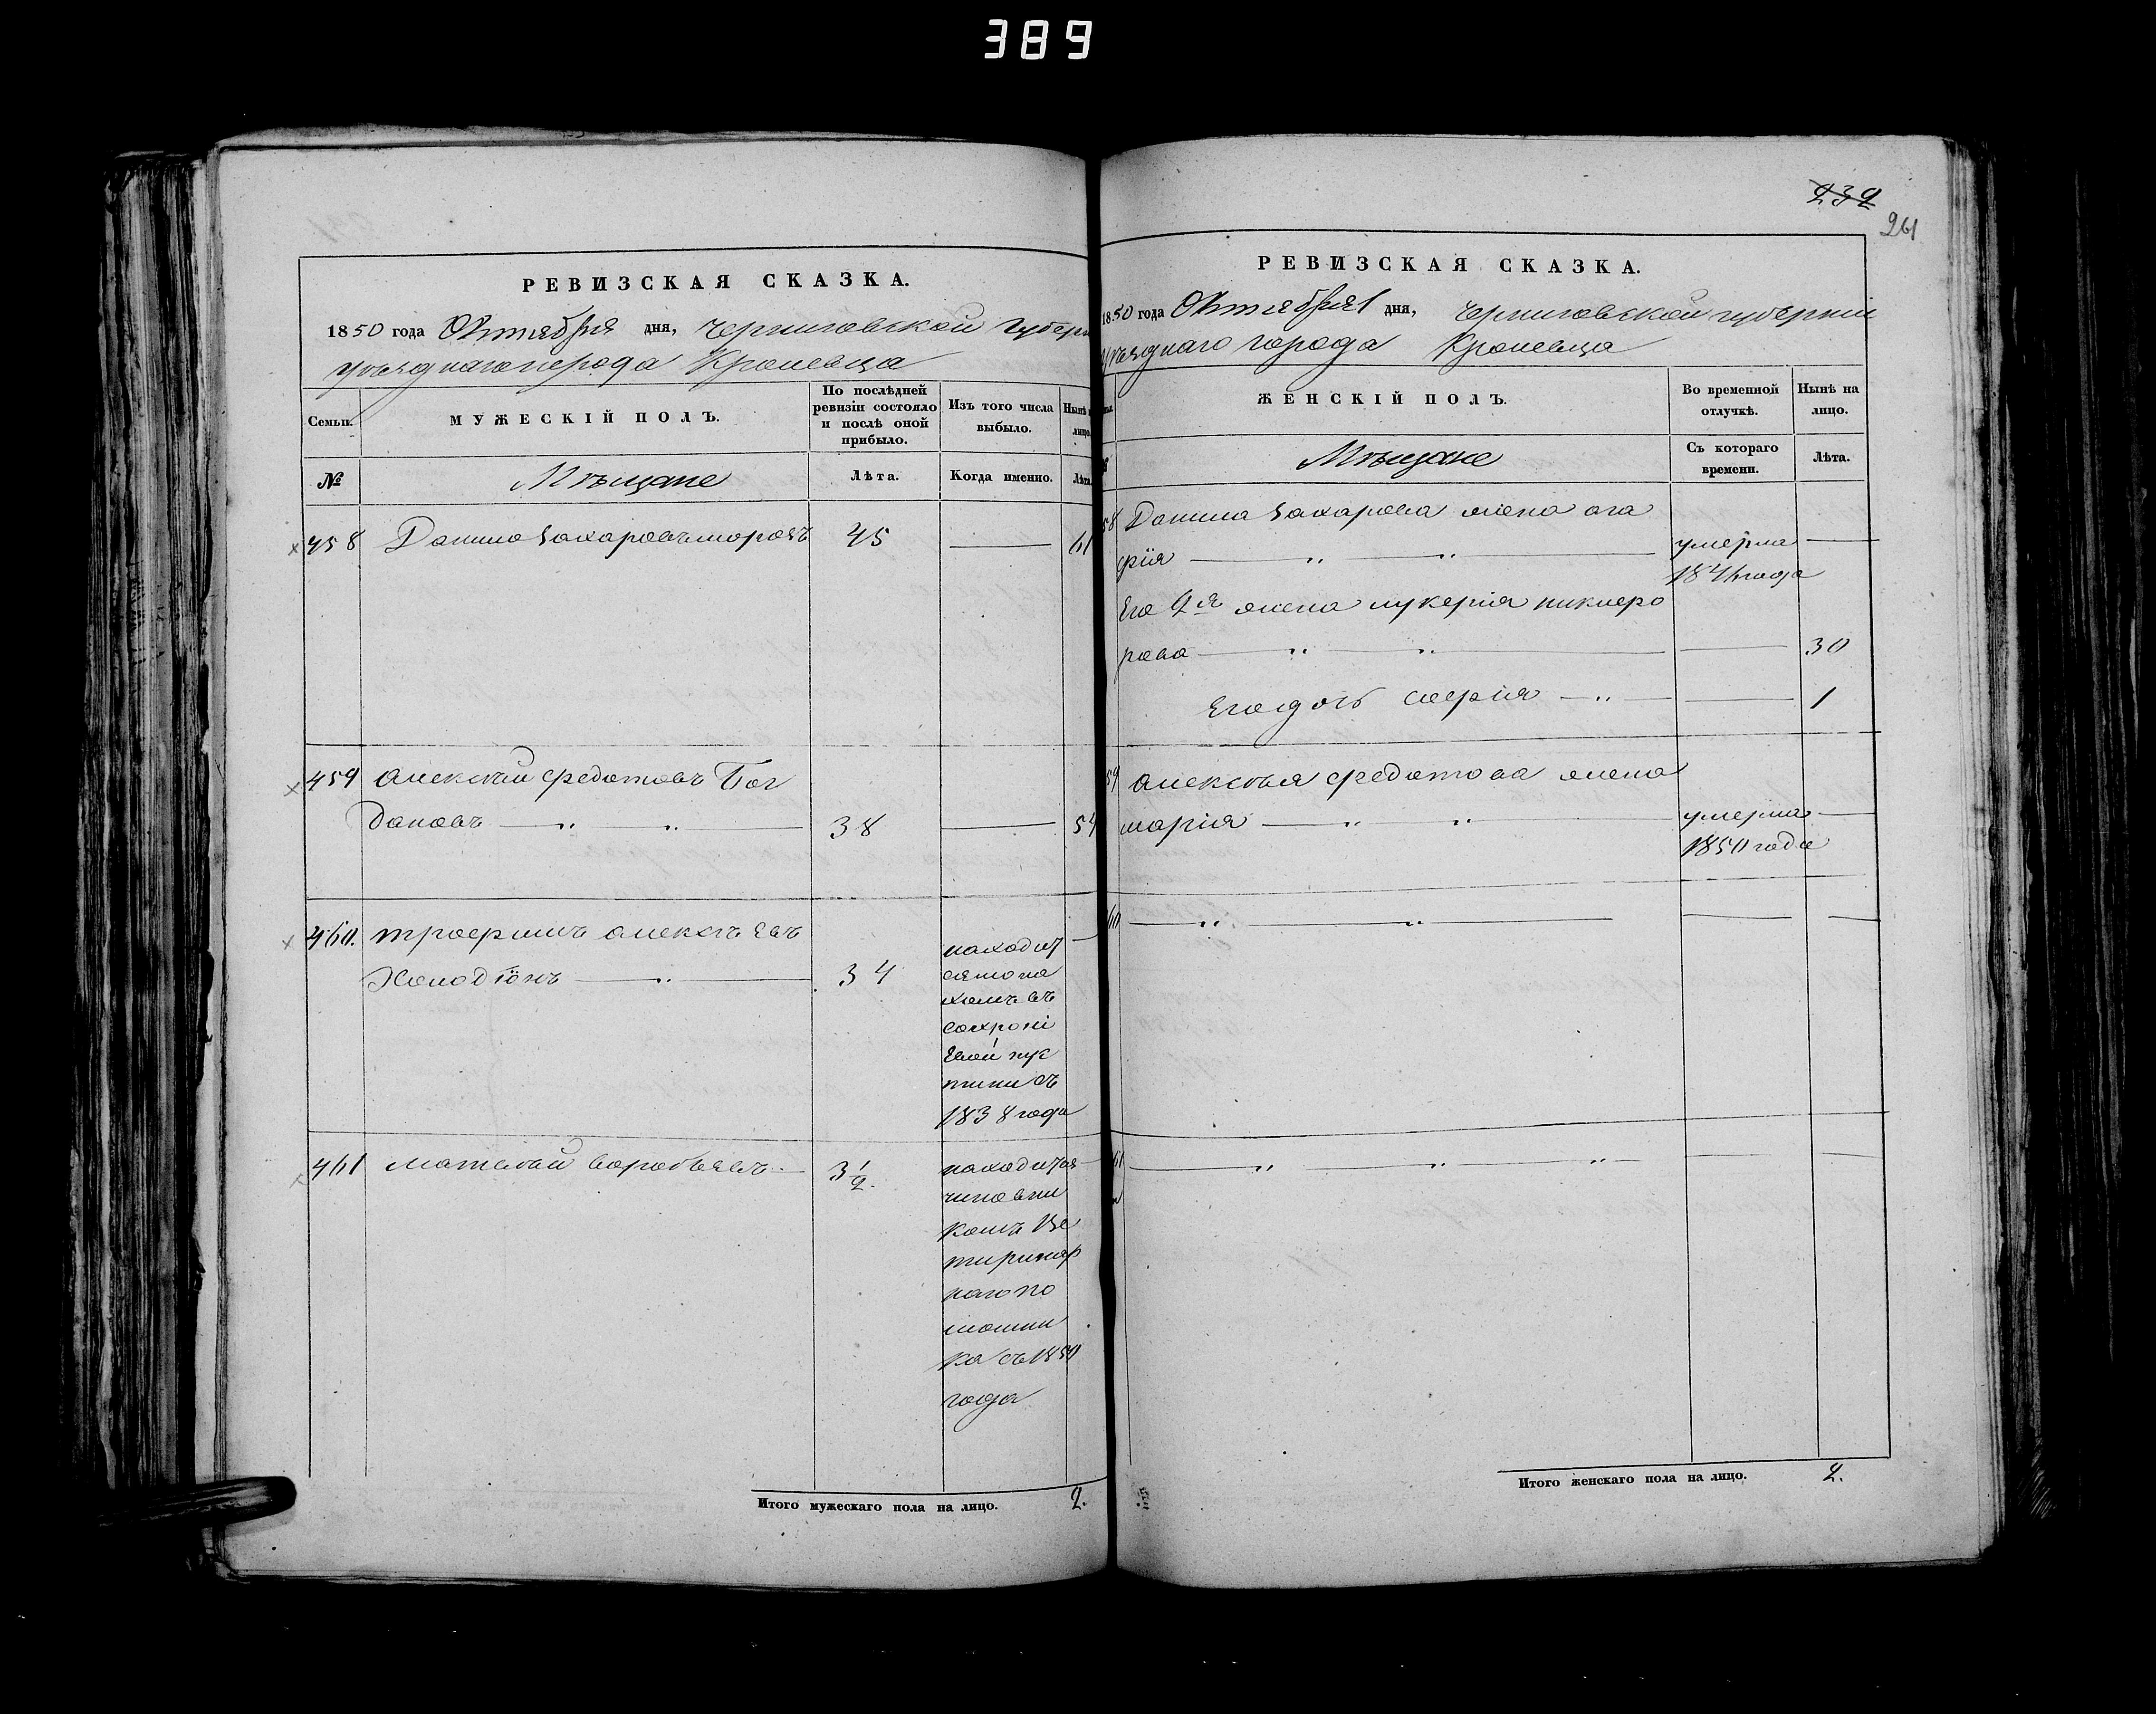 389
РЕВИЗСКАЯ СКАЗКА.
1850 года Октября дня, Черниговской Губерн
уѣзднаго города Кролевца
Семьи.
МУЖЕСКІЙ ПОЛЪ.
По послѣдней ревизіи состояло и послѣ оной прибыло.
Изъ того числа выбыло.
Нынѣ лицо
№
Мѣщане
Лѣта.
Когда именно.
Лѣта
458 Данило Захаровъ морозъ 45 61
459 Алексѣй Федотовъ Бог
дановъ 38 54
460. трофимъ алексѣевъ
34
находит
ся мона
хомъ въ
софроні
евой пус
тини съ
1838 года
461 матвѣй воробьевъ 3 1/2.
находится
чиновни
комъ Ве
теринар
наго по
мошни
ка съ 1850
года
Итого мужескаго пола на лицо. 2.
232
261
РЕВИЗСКАЯ СКАЗКА.
1850 года Октября 1 дня, Черниговской губерніи
Уѣзднаго города Кролевца
ЖЕНСКІЙ ПОЛЪ.
Во временной отлучкѣ.
Нынѣ на лицо.
Мѣщане
Съ котораго времени.
Лѣта.
58 Данила Захарова жена ага
фія умерла
184 года
Его 2я жена лукерія никифо
рова 30
Его дочь 1
59 алексѣя федотова жена
марія умерла
1850 года
60
61
Итого женскаго пола на лицо. 2.